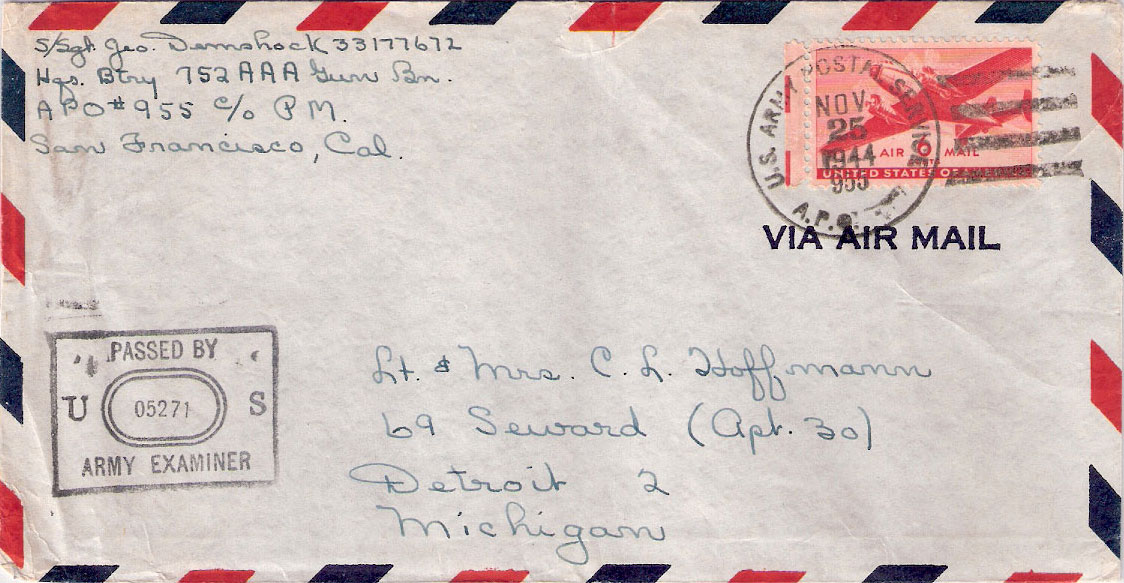 S/Sgt. Geo. Demshock 33177672
Hqs. Btry 752 AAA Gun Bn.
APO #955 c/o P M.
San Francisco, Cal.
U.S. ARMY POSTAL SERVICE
NOV
25
1944
955
A.P.O.
AIR 6¢ MAIL
UNITED STATES OF AMERICA
VIA AIR MAIL
PASSED BY
U 05271 S
ARMY EXAMINER
Lt. & Mrs. C. L. Hoffmann
69 Seward (Apt. 30)
Detroit 2
Michigan